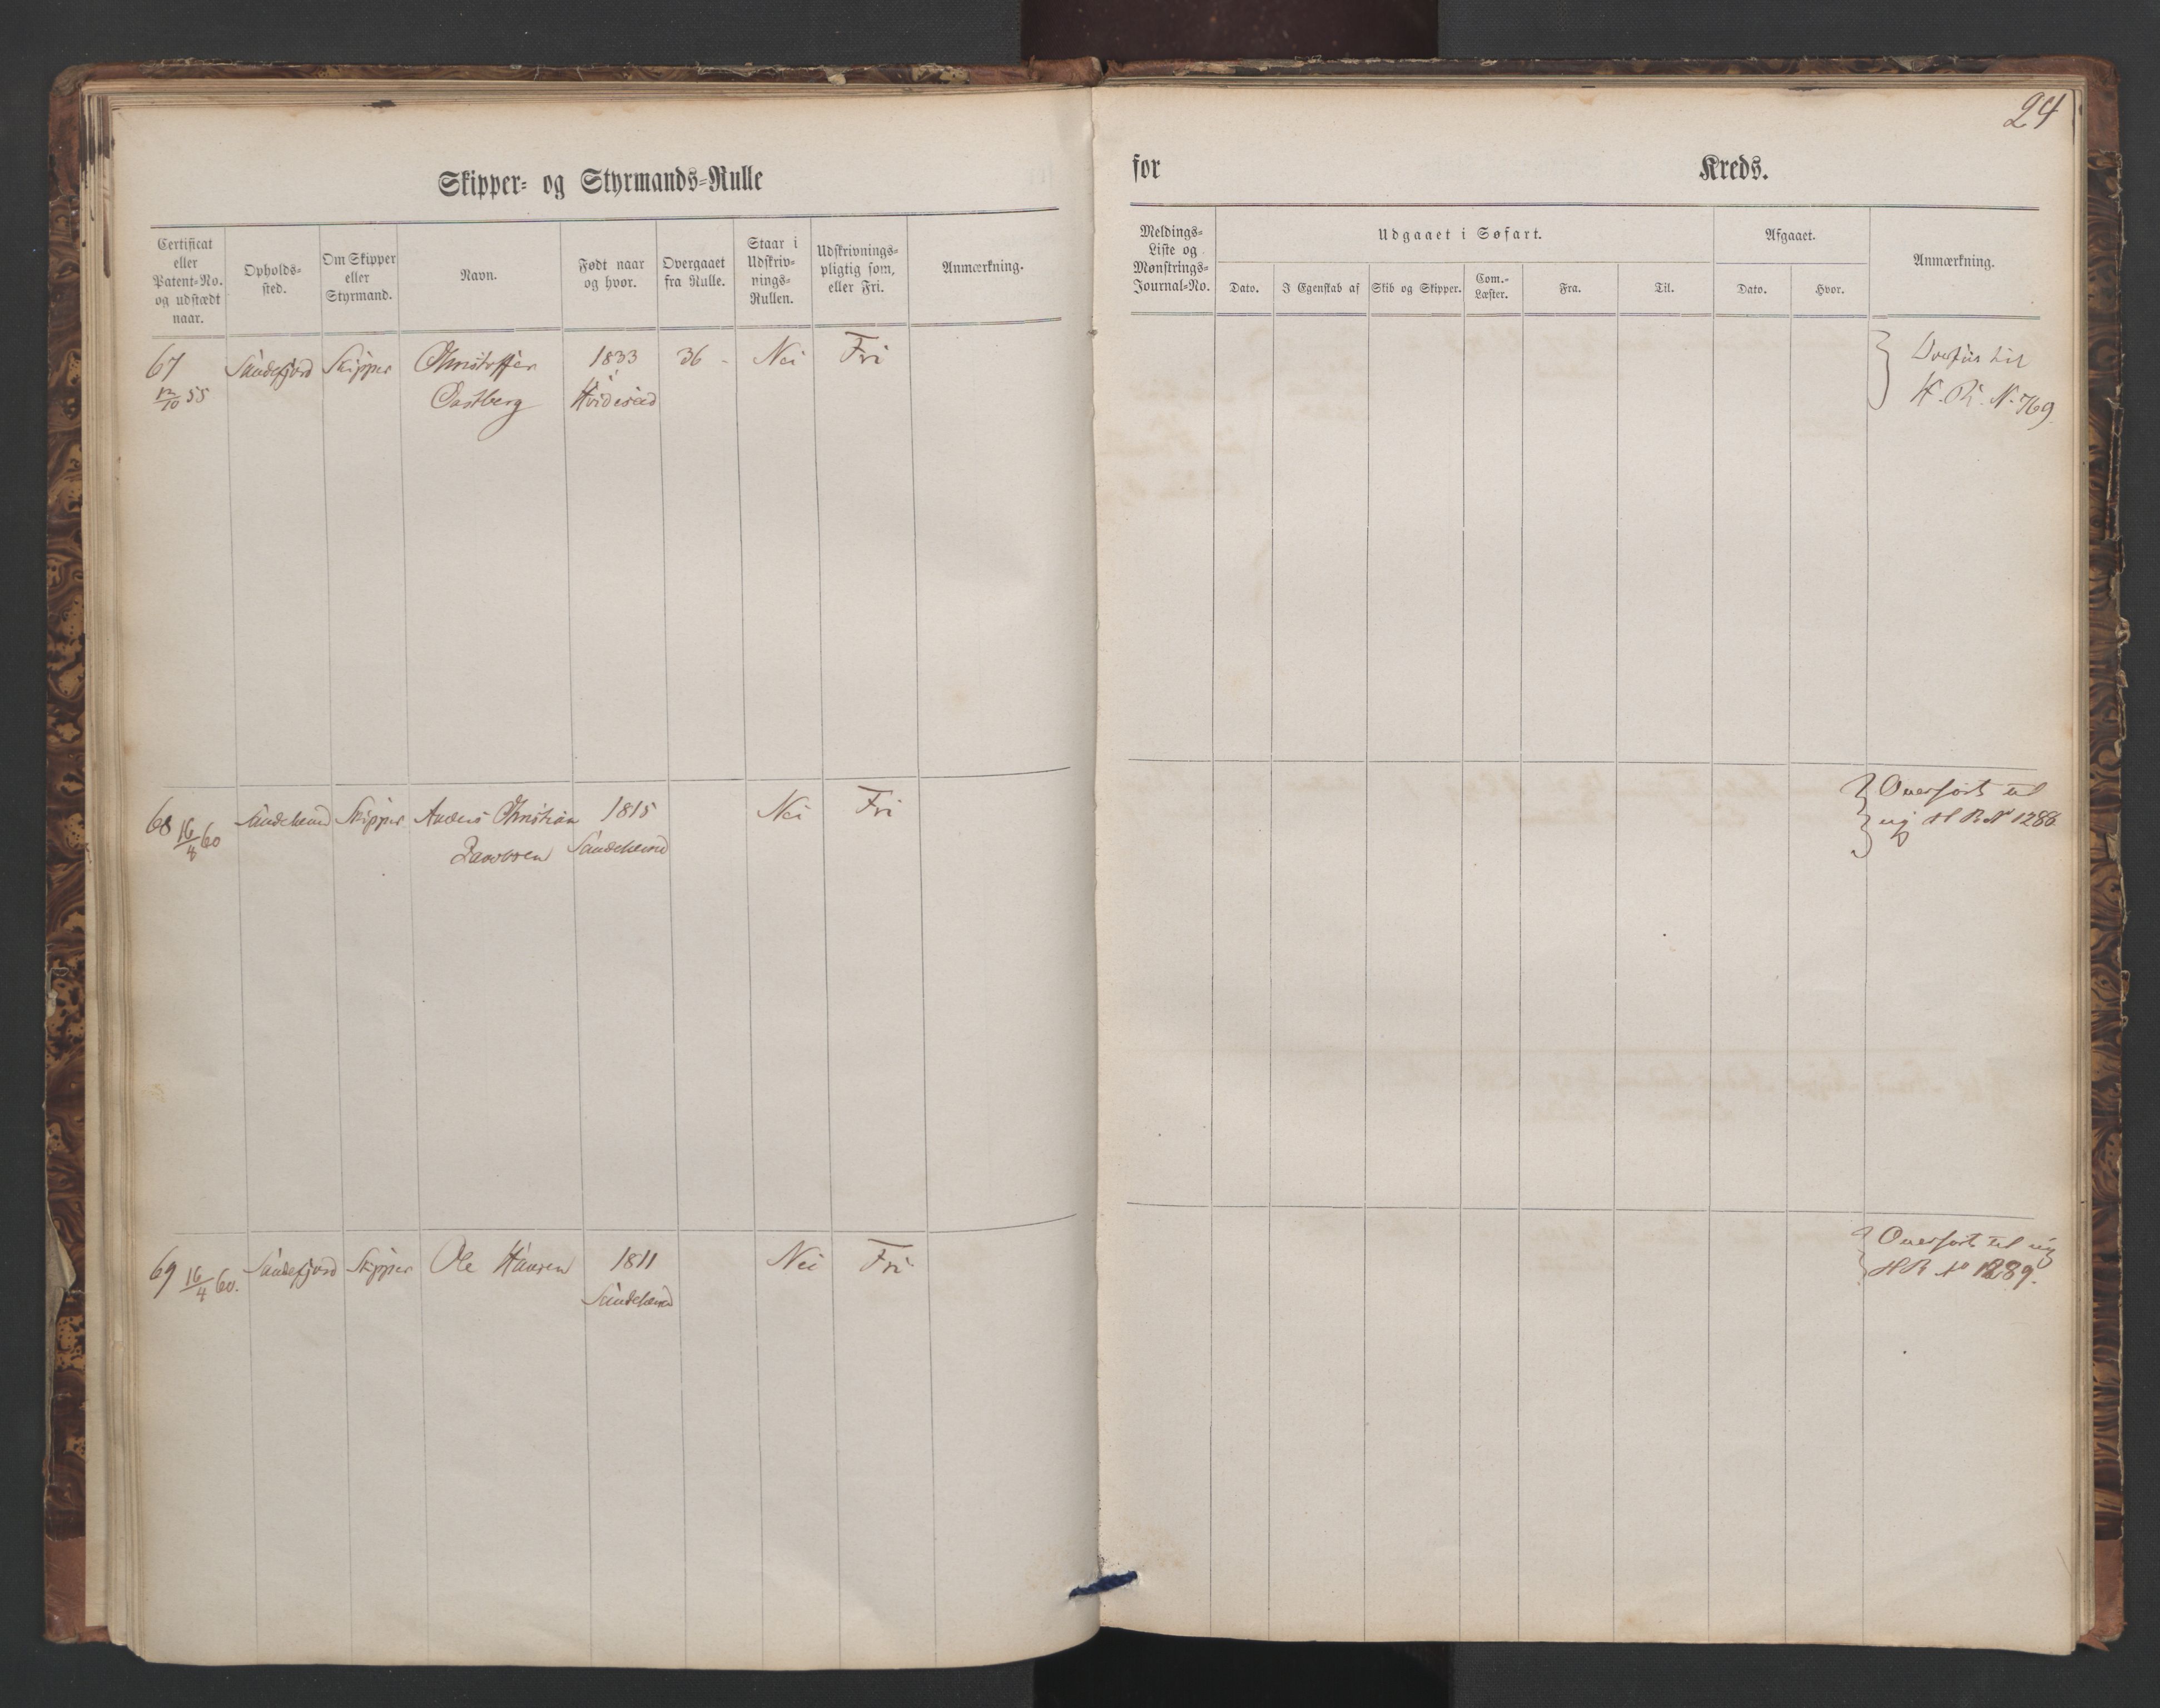 24
Skipper- og Styrmands-Rulle
for Kreds.
Certificat eller Patent-No. og udstædt naar.
Opholds-sted.
Om Skipper eller Styrmand.
Navn.
Født naar og hvor.
Overgaaet fra Rulle.
Staar i Udskriv-nings-Rullen.
Udskrivnings-pligtig som, eller Fri.
Anmærkning.
Meldings-Liste og Mønstrings-Journal-No.
Udgaaet i Søfart.
Dato.
I Egenskab af
Skib og Skipper.
Com.-Læster.
Fra.
Til.
Afgaaet.
Dato.
Hvor.
Anmærkning.
67 Sandefjord Skipper Christoffer 1833 36 - Nei Fri
12/10 55 Castberg Hvideseid
til
H. R. N. 769
68 16/4 60 Sandeherred Skipper Anders Christian 1815 Nei Fri Overført til
Jacobsen Sandeherred ny H R N 1288
69 16/4 60. Sandefjord Skipper Ole Hansen 1811 Nei Fri Overført til ny
Sandeherred H R No 1289.